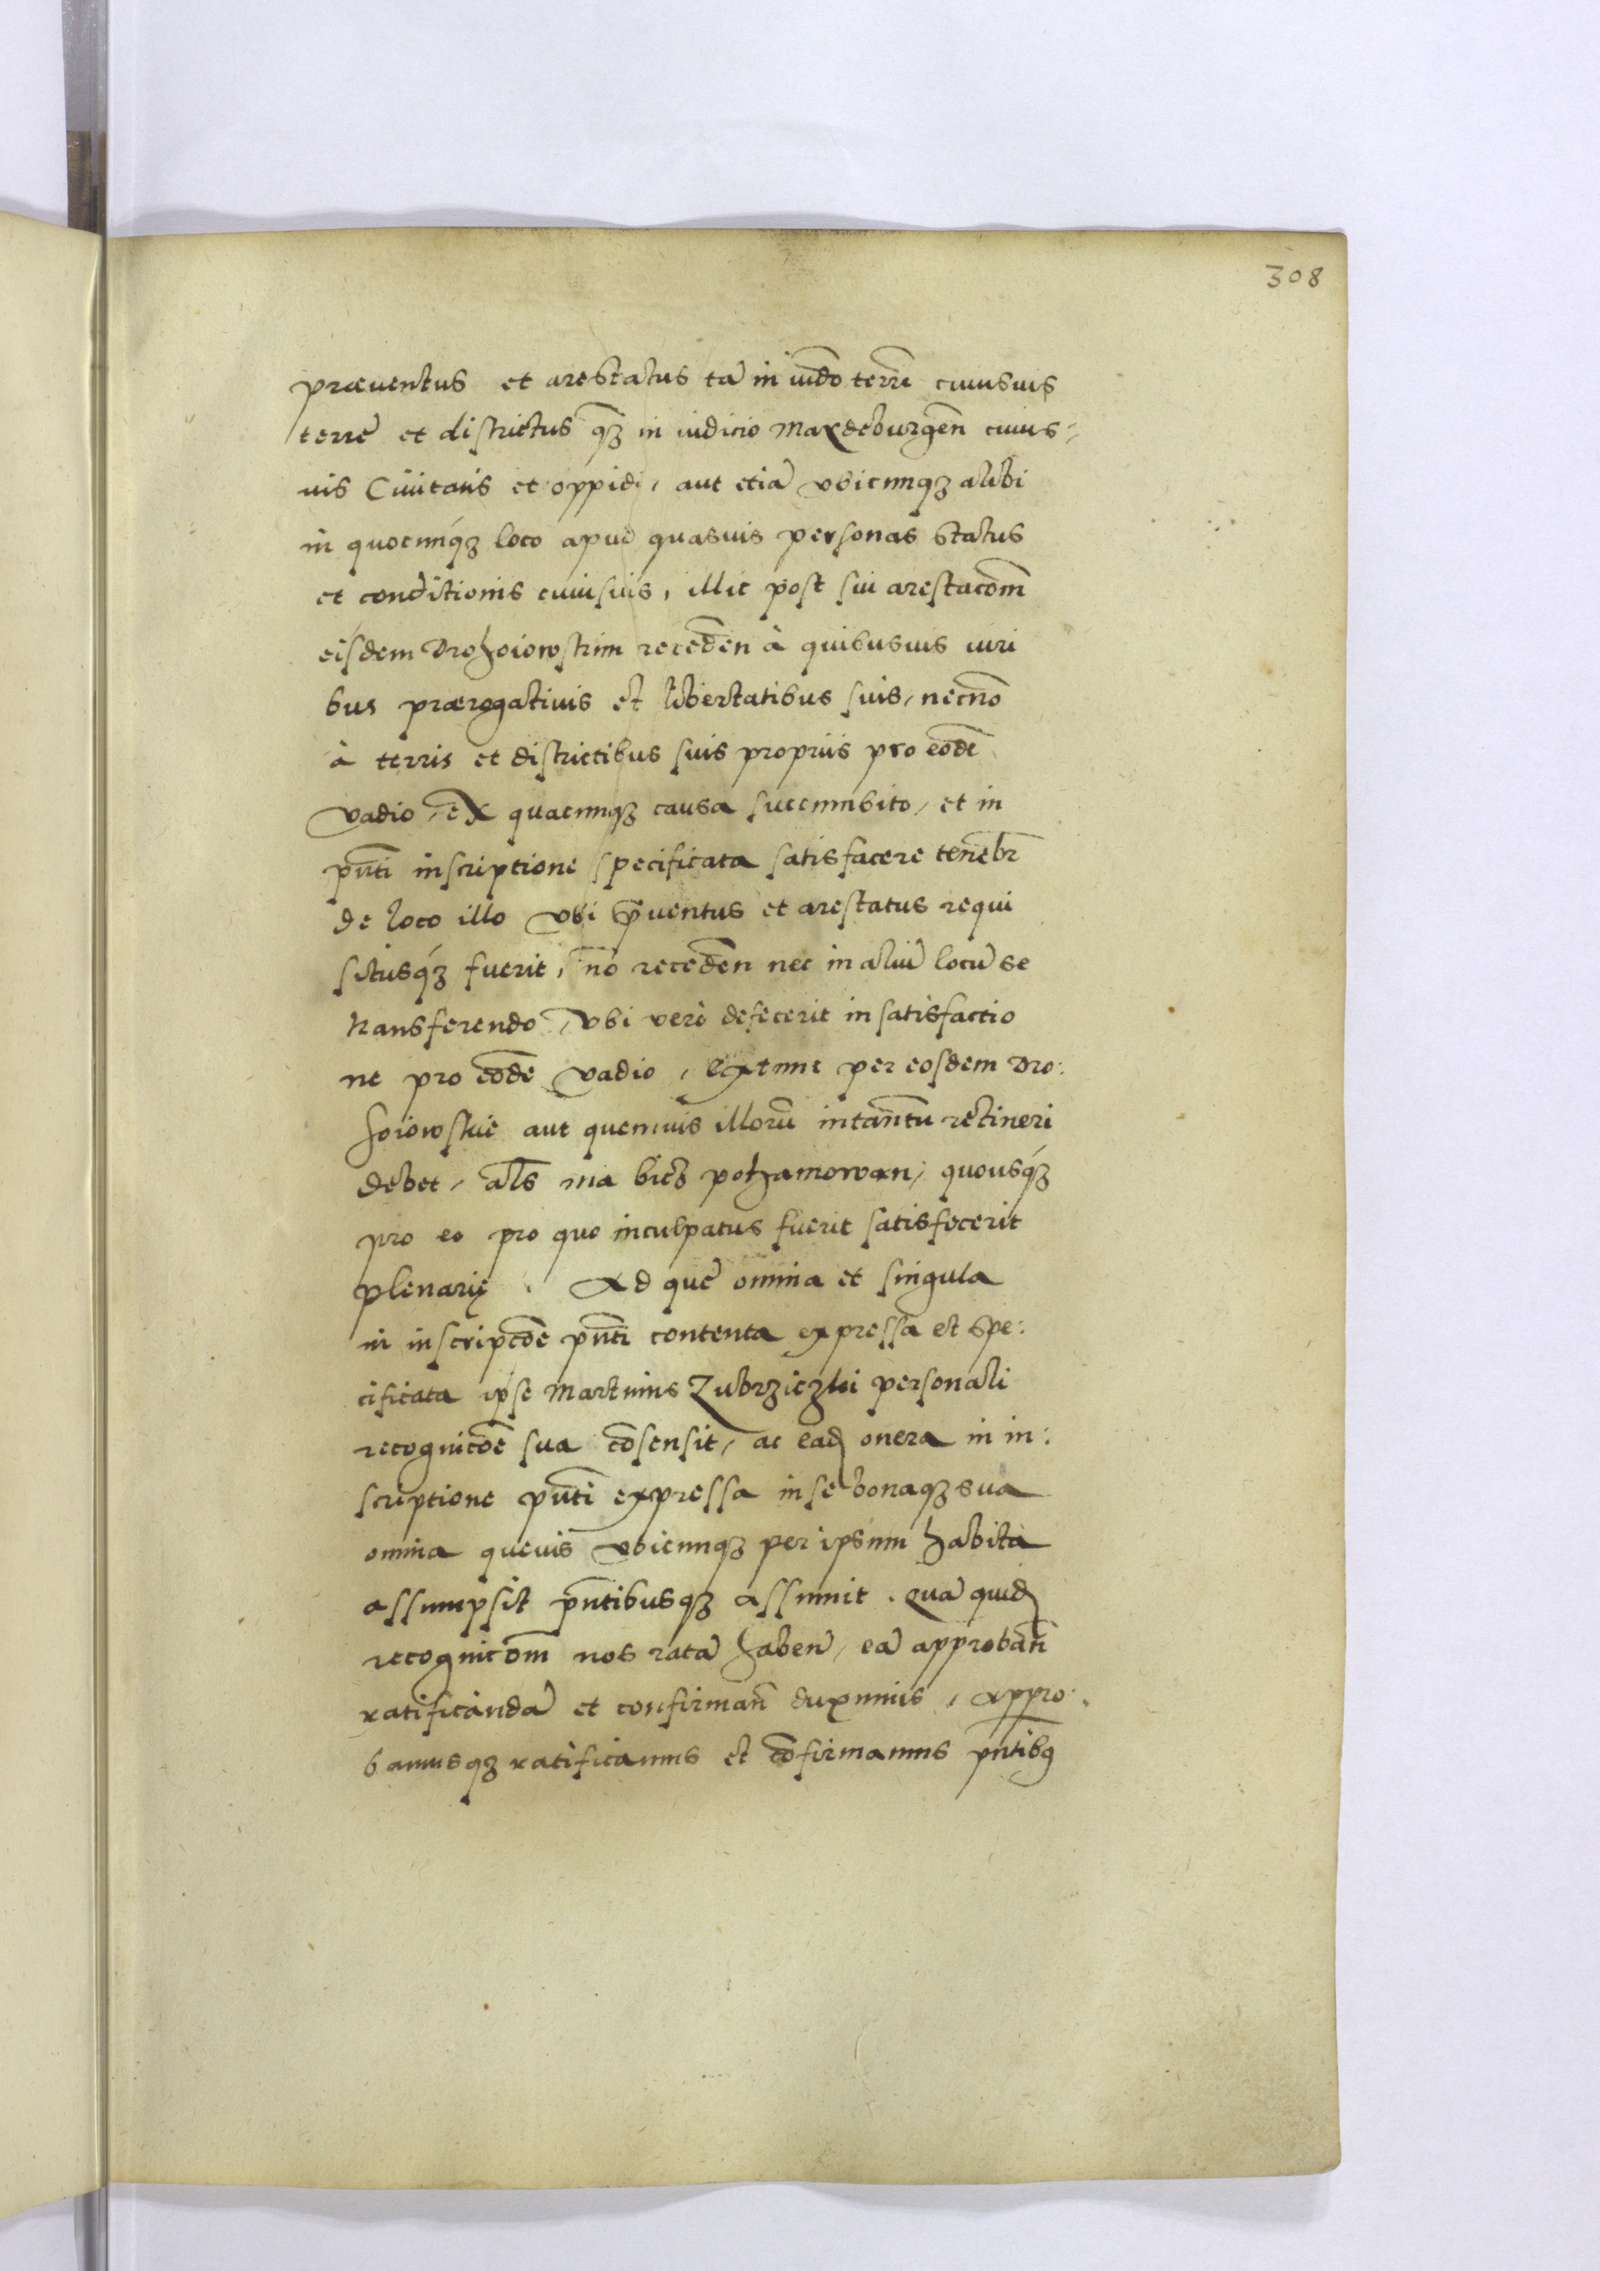 308
præuentus et arestatus tā in iud̄o terrē cuiusuis
terrę et districtus q̄3 in iudicio Maydeburgen̄ cuius=
uis Ciuitatis et oppidi, aut etiā vbicunq3 alibi
in quocunq3 loco apud quasuis personas status
et conditionis cuiusuis, illic post sui arestacōm̄
eisdem Drohoiowskim receden̄ à quibusuis iuri
bus prærogatiuis et libertatibus suis, necnō
à terris et districtibus suis propriis pro eōdē
vadio, ex quacunq3 causa succumbito, et in
pn̄ti inscriptione specificata satisfacere tenebr̄
de loco illo vbi p̄uentus et arestatus requi
situsq3 fuerit, nō receden̄ nec in aliū locū se
transferendo, vbi verò defecerit in satisfactio
ne pro eōdē vadio, extunc per eosdem Dro:
hoiowskie aut quemuis illorū intantū retineri
debet, al̄s ma bicz pohamowan, quousq3
pro eo pro quo inculpatus fuerit satisfecerit
plenarię. Ad quę omnia et singula
in inscripcōē pn̄ti contenta expressa et spe:
cificata ipse Martinus Zubrziczki personali
recognicōē sua cōsensit, ac ead onera in in:
scriptione pn̄ti expressa in se bonaq3 sua
omnia queuis vbicunq3 per ipsum habita
assumpsit pn̄tibusq3 assumit. Quā quid
recognicōm̄ nos ratā haben̄, eā approban̄
ratificandā et confirman̄ duximus, appro:
bamusq3 ratificamus et cōfirmamus pn̄tib9